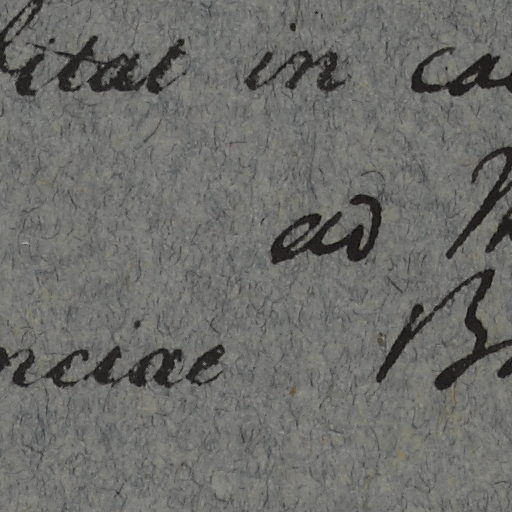 litat in ca
ad
nciae B